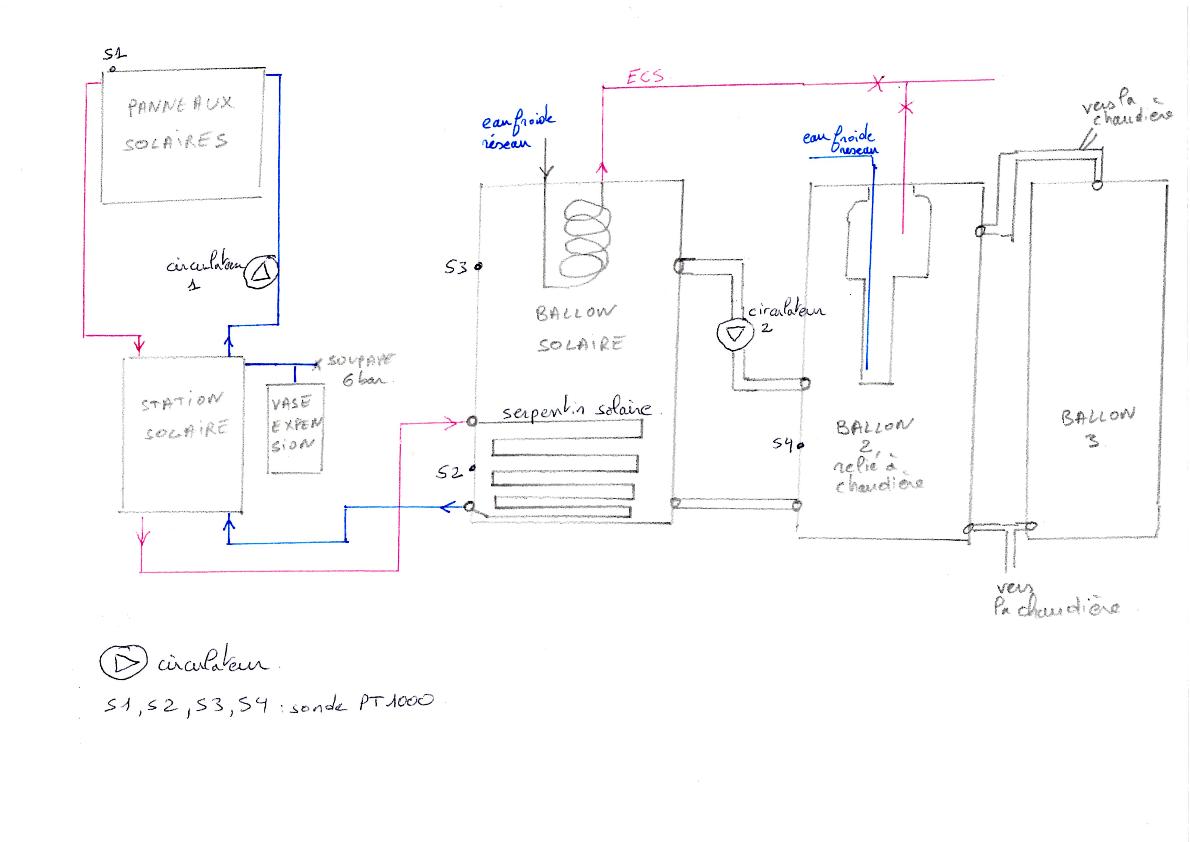 S1
PANNEAUX
SOLAIRES
circulateur
1
STATION
SOLAIRE
SOUPAPE
6 bar.
VASE
EXPEN
SION
ECS
eau froide
réseau
S3
BALLON
SOLAIRE
serpentin solaire.
S2
circulateur
2
eau froide
réseau
S4
BALLON
2,
relié à
chaudière
vers la
chaudière
BALLON
3
vers
la chaudière
circulateur.
S1, S2, S3, S4 : sonde PT1000